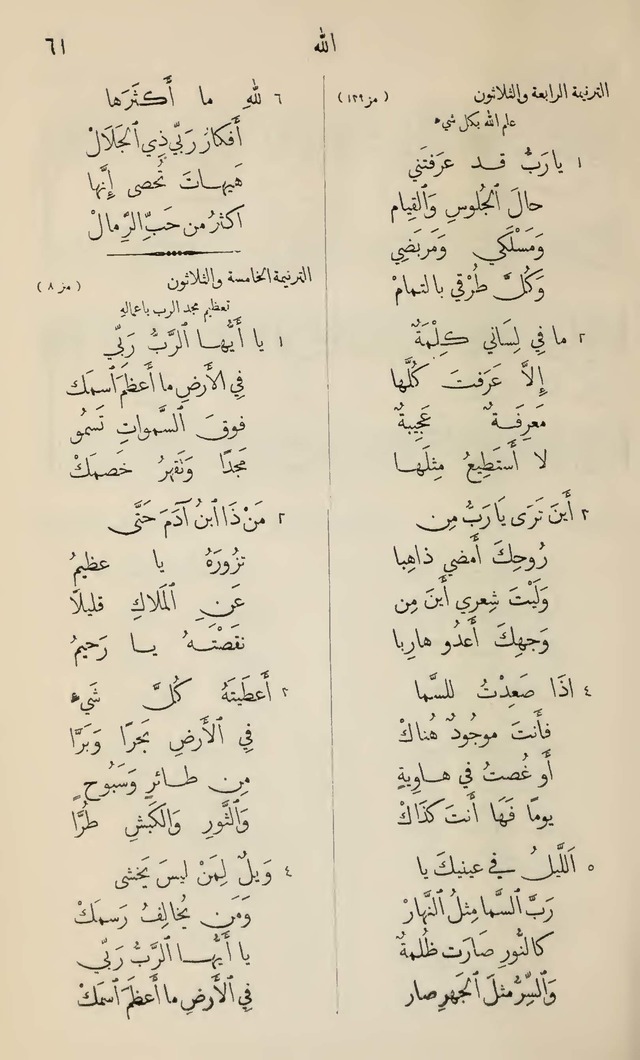 ٦١
الله
الترنيمة الرابعة والثلاثون (مز ١٣٩)
علم الله بكل شيء
١ يا رَبُّ قد عرَفتَني
حالَ ٱلجُلوسِ وَٱلقِيام
وَمَسْلَكي وَمَربَضِي
وَكُلَّ طُرْقي بالتمامْ
٢ ما في لِسَاني كِلْمَةٌ
إِلاَّ عَرَفتَ كُلَّها
مَعرِفَةٌ عَجِيبةٌ
لا أَستَطِيعُ مِثلَهــا
٣ أَينَ تَرَى يَا رَبُّ مِن
رُوحِكَ أَمضي ذاهِبا
وَلَيْتَ شِعري أَينَ مِن
وَجهِكَ أَعدُو هارِبا
٤ اذَا صَعِدْتُ للسَّما
فأَنتَ موجُودٌ هُناكْ
أَو غُصتُ في هــاوِيةٍ
يومًا فَهَا أَنتَ كذَاكْ
٥ اَللَّيلُ في عينيكَ يا
رَبَّ ٱلسَّما مِثلُ ٱلنَّهارْ
كالنُّورِ صارَت ظُلمةٌ
وَٱلسِّرُّ مثلَ ٱلجَهرِ صار
٦ للهِ ما أَكثَرَها
أَفكارُ رَبِّي ذِي ٱلجَلالْ
هَيهاتَ تُحصى إِنَّها
اكثرُ من حَبِّ ٱلرِّمالْ
الترنيمة الخامسة والثلاثون (مز ٨)
تعظيم مجد الرب باعمالهِ
١ يا أَيُّهــا ٱلرَّبُّ رَبِّي
فِي ٱلأَرضِ ما أَعظَمَ ٱسمَكْ
فوقَ ٱلسَّمواتِ تَسمُو
مَجدًا وَتَقهرُ خَصمَكْ
٢ مَنْ ذَا ٱبنُ آدَمَ حَتَّى
تزُورَهُ يا عظيمُ
عَنِ ٱلمَلاكِ قليلاً
نقَصْتَــهُ يــا رَحيمُ
٣ أَعطَيتَهُ كُلَّ شَيء
فِي ٱلأَرضِ بَحرًا وَبَرَّا
مِن طــائرٍ وَسَبُوحٍ
وَٱلثَّورِ وَٱلكَبشِ طُرَّا
٤ وَيلٌ لِمَنْ ليسَ يَخشى
وَمَن يُخالِفُ رَسمَكْ
يا أَيُّهــا ٱلرَّبُّ رَبِّي
فِي ٱلأَرضِ ما أَعظَمَ ٱسمَكْ